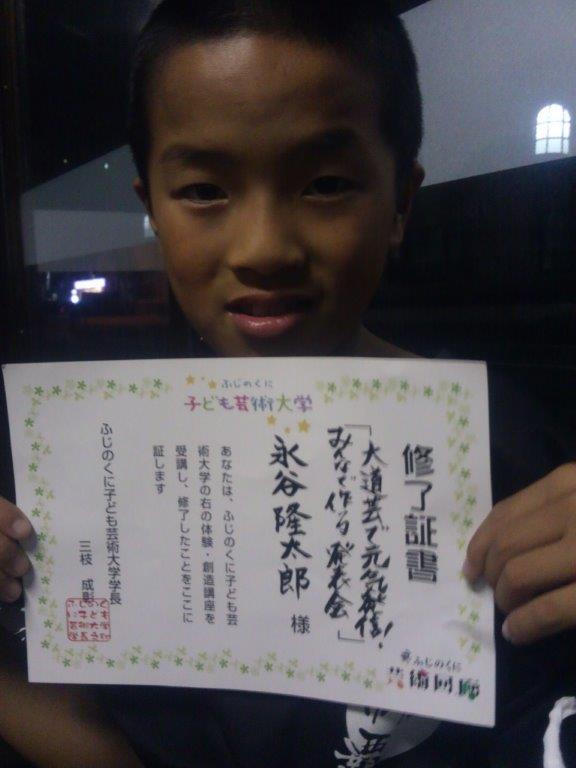 ふじのくに
子ども芸術大学
修了証書
「大道芸で元気発信!
みんなで作る発表会」
永谷隆太郎 様
あなたは、ふじのくに子ども芸
術大学の右の体験・創造講座を
受講し、修了したことをここに
証します
ふじのくに子ども芸術大学学長
三枝 成彰
ふじのくに
芸術回廊